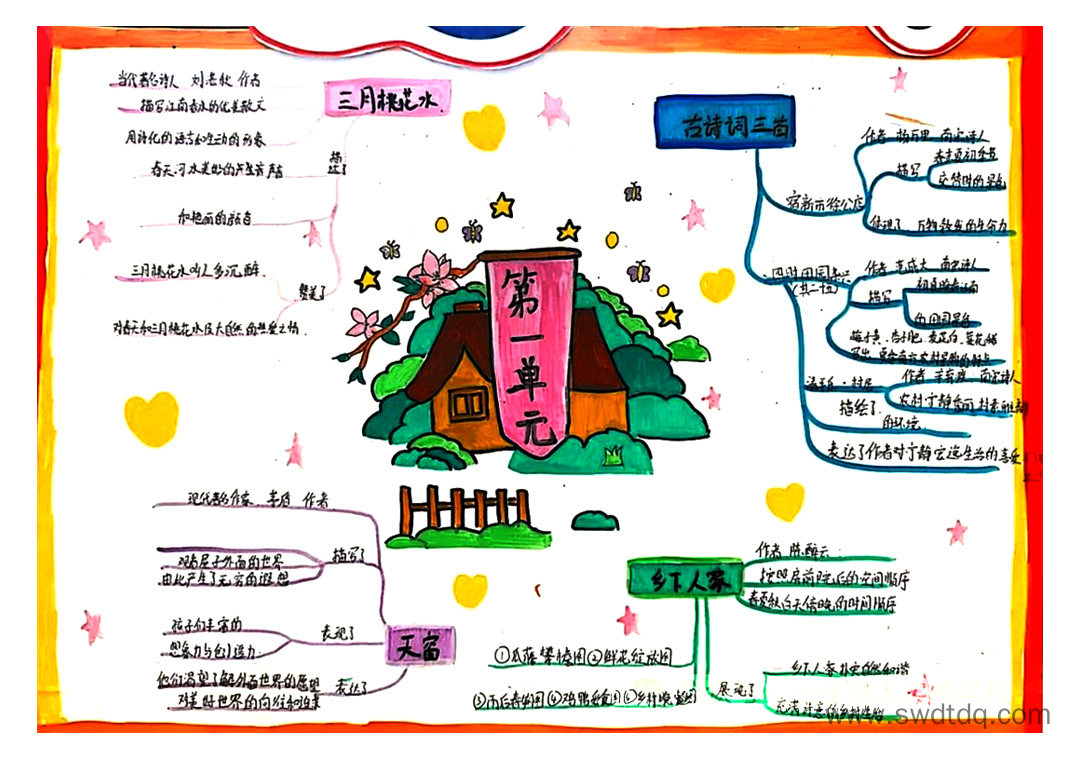 第一单元
三月桃花水
当代著名诗人 刘湛秋 作者
描写江南春水的优美散文
描述了
用诗化的语言和生动的形象
春天,河水美妙的声音
和艳丽的
赞美了
三月桃花水叫人多沉醉.
对春天和三月桃花水及大自然的热爱之情.
古诗词三首
宿新市徐公店
作者 杨万里 南宋诗人
描写
春末夏初季节
交替时的景色
体现了 万物 的生命力
四时田园杂兴
(其二十五)
作者 范成大 南宋诗人
描写
初夏 江南
的田园景色
梅子黄、杏子肥、麦花白、菜花稀
写出 夏季南方农村景物的特点
清平乐·村居
作者 辛弃疾 南宋诗人
描绘了
农村宁静
的环境
表达了作者对宁静 生活的喜爱
天窗
现代著名作家 茅盾 作者
描写了
观看屋子外面的世界
由此产生了无穷的遐想
表现了
孩子们丰富的
想象力与创造力
表达了
他们渴望了解外面世界的愿望
对美好世界的向往和追求
乡下人家
作者 陈醉云
按照房前屋后的空间顺序
春夏秋白天傍晚的时间顺序
①瓜藤攀 图②鲜花绽放图
③雨后春笋图④鸡鸭觅食图⑤乡村晚 图
展现了
乡下人家朴实自然和谐
充满诗意的乡村
www.swdtdq.com